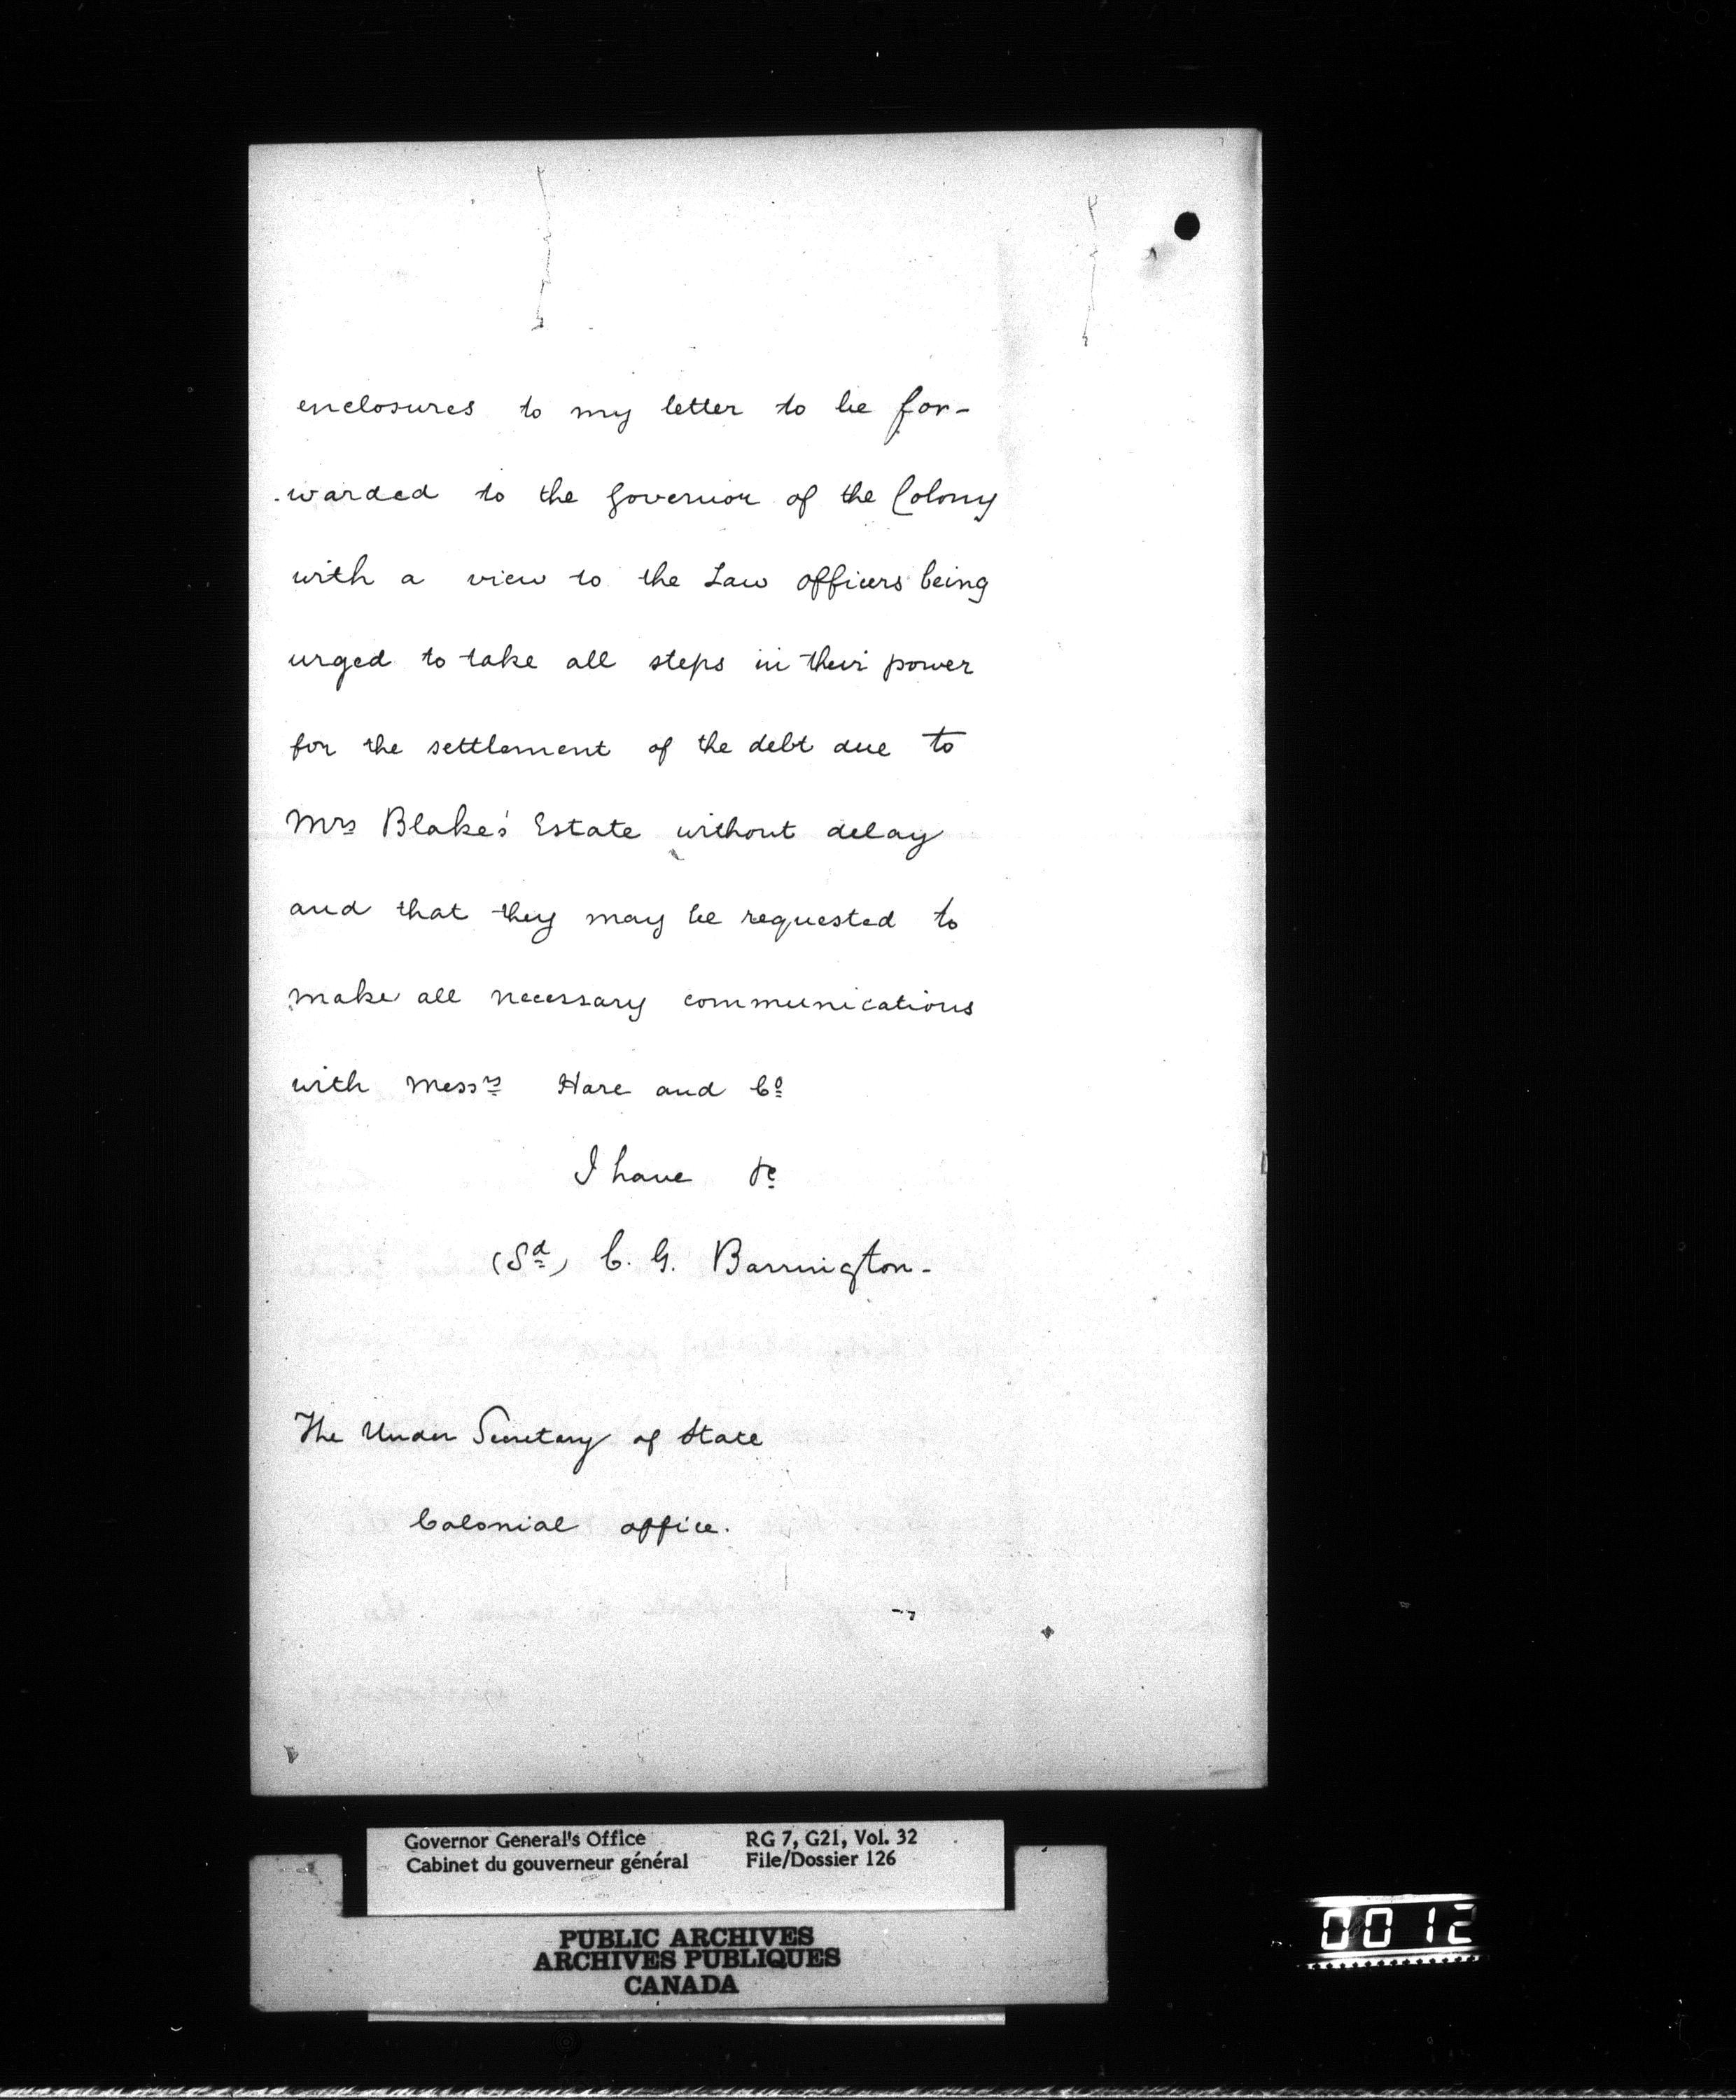 enclosures to my letter to be for-
-warded to the Governor of the Colony
with a view to the Law officers being
urged to take all steps in their power
for the settlement of the debt due to
Mrs Blake's Estate without delay
and that they may be requested to
make all necessary communications
with Messrs Hare and Co
I have &c
(Sd) C. G. Barrington-
The Under Secretary of State
Colonial office.
Governor General's Office RG 7, G21, Vol. 32
Cabinet du gouverneur général File/Dossier 126
PUBLIC ARCHIVES
ARCHIVES PUBLIQUES
CANADA
0012